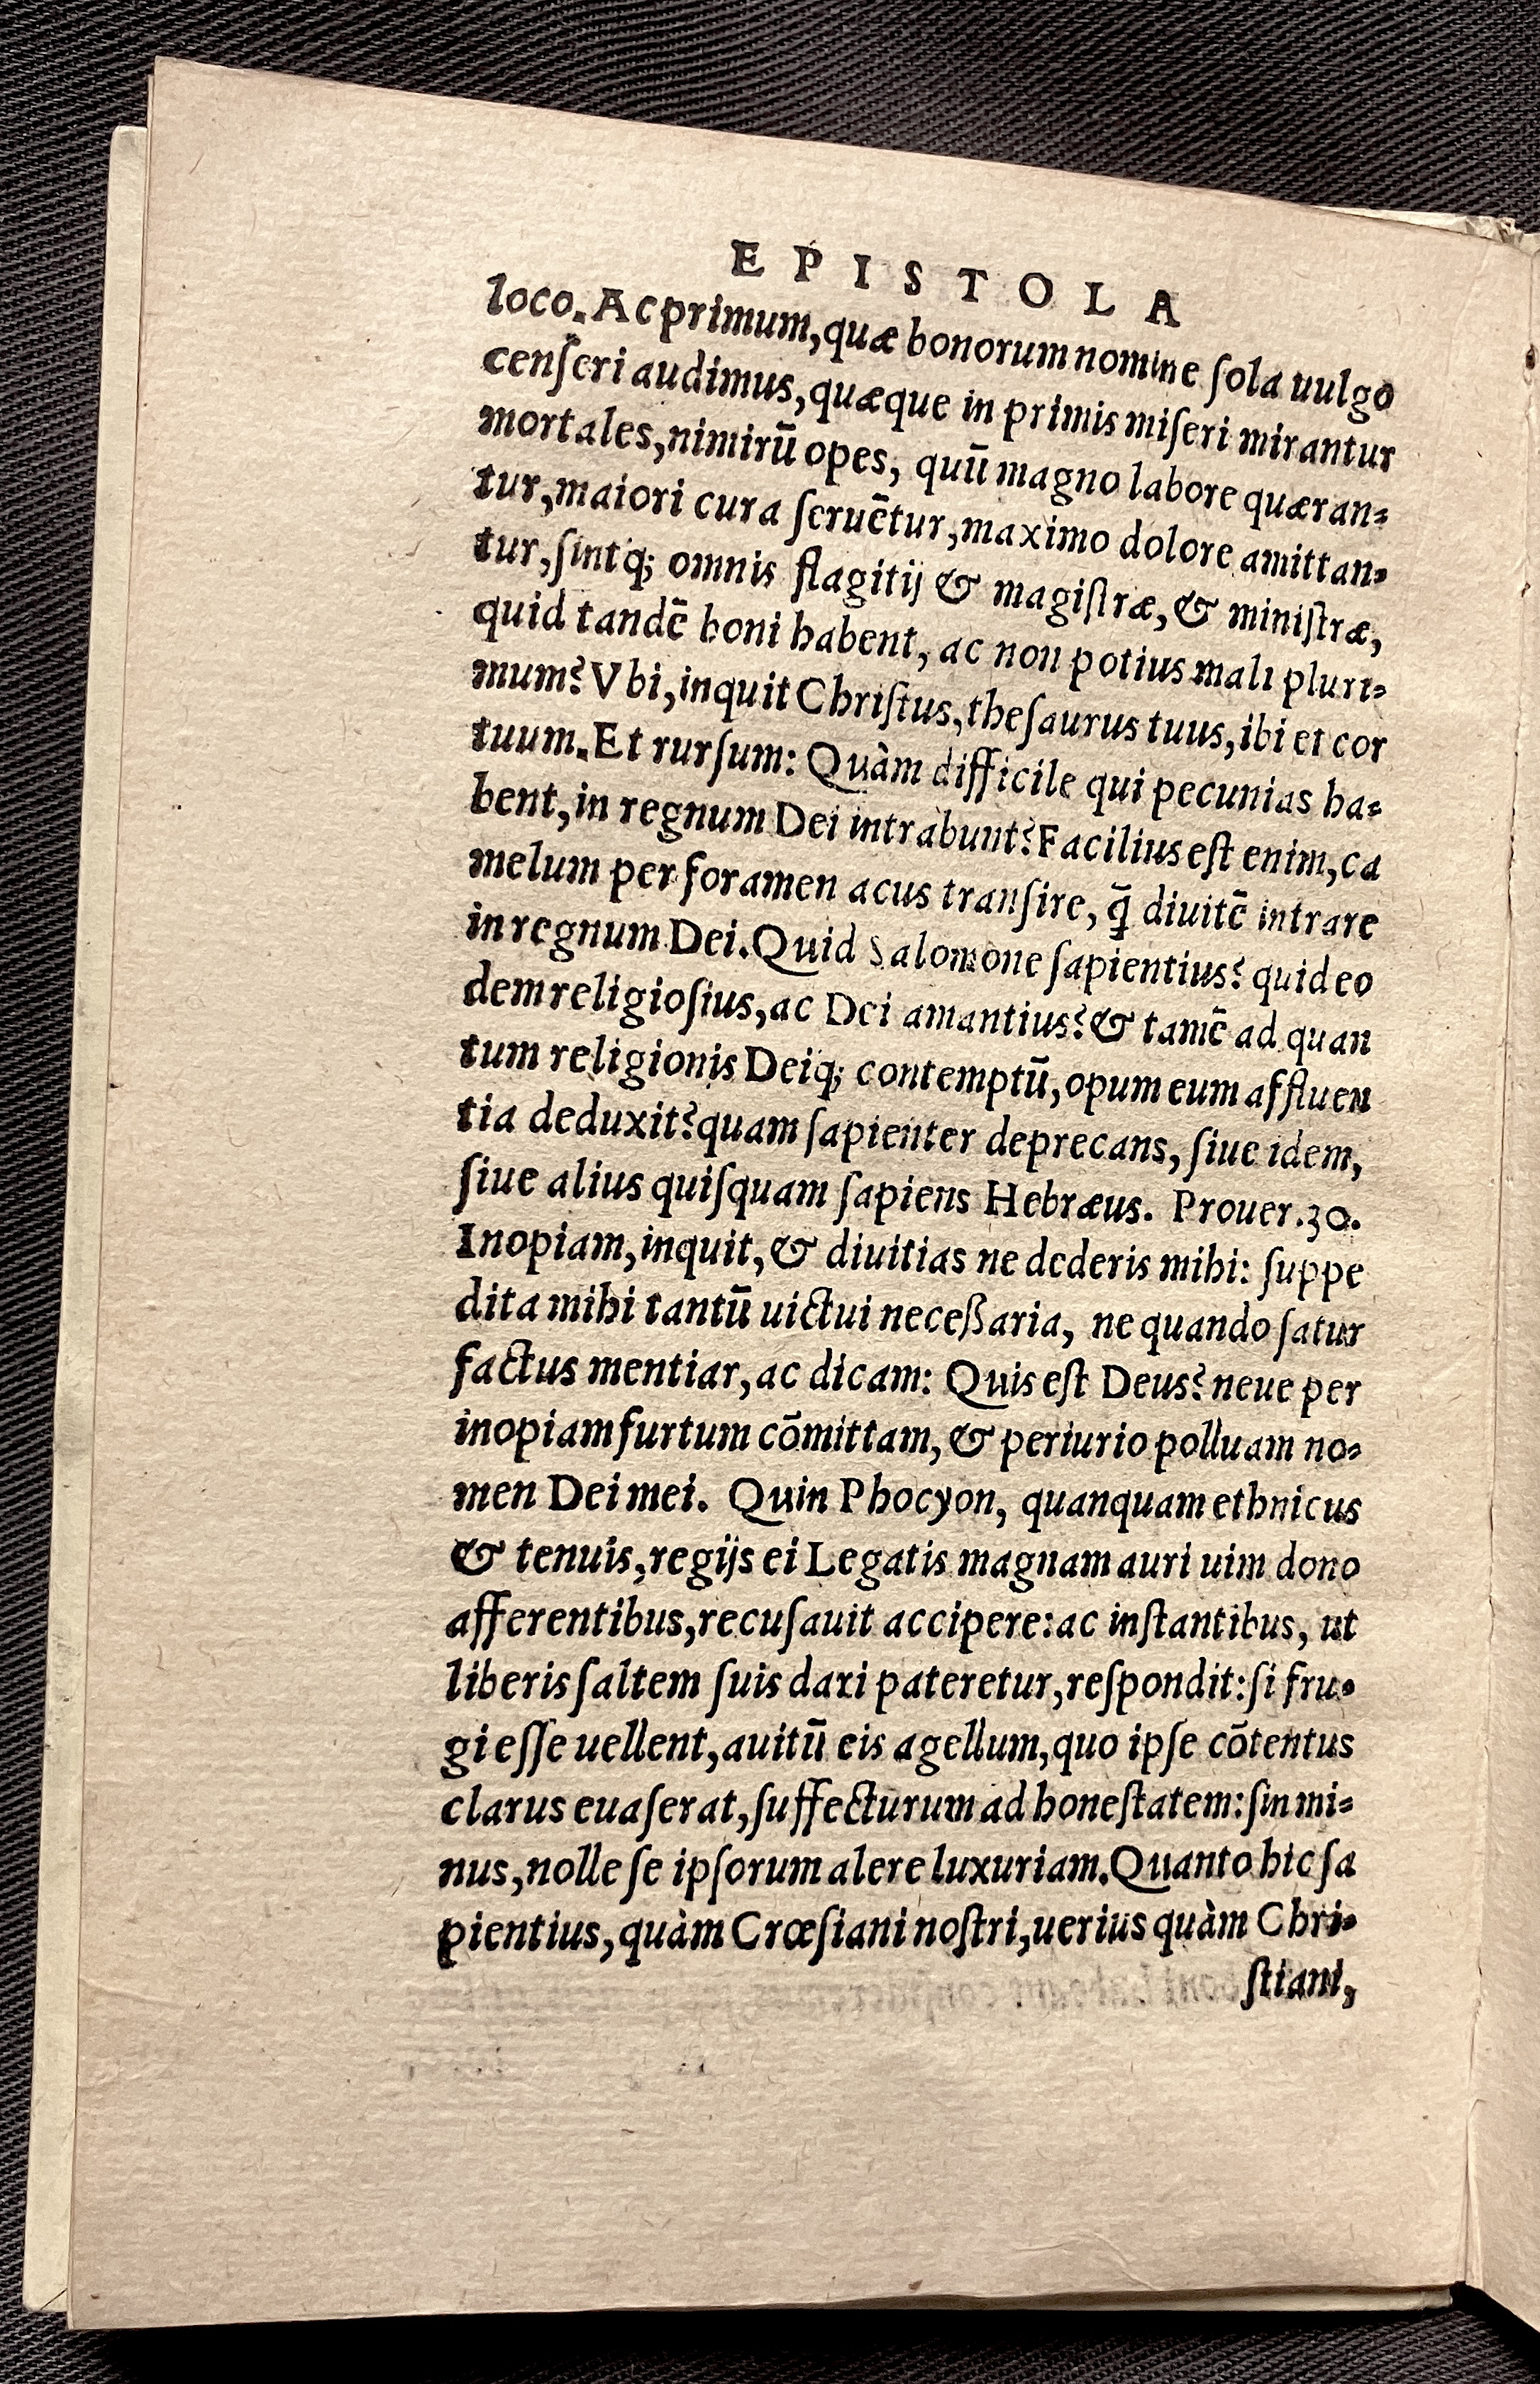 EPISTOLA
loco. Ac primum, quæ bonorum nomine ſola uulgo
cenſeri audimus, quæque in primis miſeri mirantur
mortales, nimirū opes, quū magno labore quæran-
tur, maiori cura ſeruētur, maximo dolore amittan-
tur, ſintq; omnis flagitij & magiſtræ, & miniſtræ,
quid tandē boni habent, ac non potius mali pluri-
mum? Vbi, inquit Chriſtus, theſaurus tuus, ibi et cor
tuum. Et rurſum: Quàm difficile qui pecunias ha-
bent, in regnum Dei intrabunt? Facilius eſt enim, ca
melum per foramen acus tranſire, q̄ diuitē intrare
in regnum Dei. Quid Salomone ſapientius? quid eo
dem religioſius, ac Dei amantius? & tamē ad quan
tum religionis Deiq; contemptū, opum eum affluen
tia deduxit? quam ſapienter deprecans, ſiue idem,
ſiue alius quiſquam ſapiens Hebræus. Prouer. 30.
Inopiam, inquit, & diuitias ne dederis mihi: ſuppe
dita mihi tantū uictui neceßaria, ne quando ſatur
factus mentiar, ac dicam: Quis eſt Deus? neue per
inopiam furtum cōmittam, & periurio polluam no-
men Dei mei. Quin Phocyon, quanquam ethnicus
& tenuis, regijs ei Legatis magnam auri uim dono
afferentibus, recuſauit accipere: ac inſtantibus, ut
liberis ſaltem ſuis dari pateretur, reſpondit: ſi fru-
gi eſſe uellent, auitū eis agellum, quo ipſe cōtentus
clarus euaſerat, ſuffecturum ad honeſtatem: ſin mi-
nus, nolle ſe ipſorum alere luxuriam. Quanto hic ſa
pientius, quàm Crœſiani noſtri, uerius quàm Chri-
ſtiani,